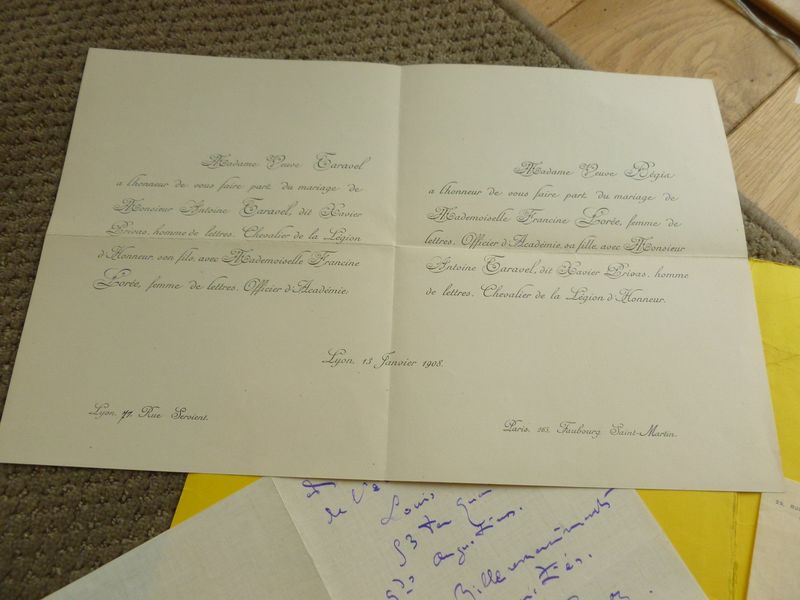 Madame Veuve Taravel
a l'honneur de vous faire part du mariage de
Monsieur Antoine Taravel, dit Xavier
Privas, homme de lettres, Chevalier de la Légion
d'Honneur, son fils, avec Mademoiselle Francine
Lorée, femme de lettres, Officier d'Académie.
Madame Veuve Régia
a l'honneur de vous faire part du mariage de
Mademoiselle Francine Lorée, femme de
lettres, Officier d'Académie, sa fille, avec Monsieur
Antoine Taravel, dit Xavier Privas, homme
de lettres, Chevalier de la Légion d'Honneur.
Lyon, 15 Janvier 1908.
Lyon, 77, Rue Servient.
Paris, 263, Faubourg Saint-Martin.
Louis
53